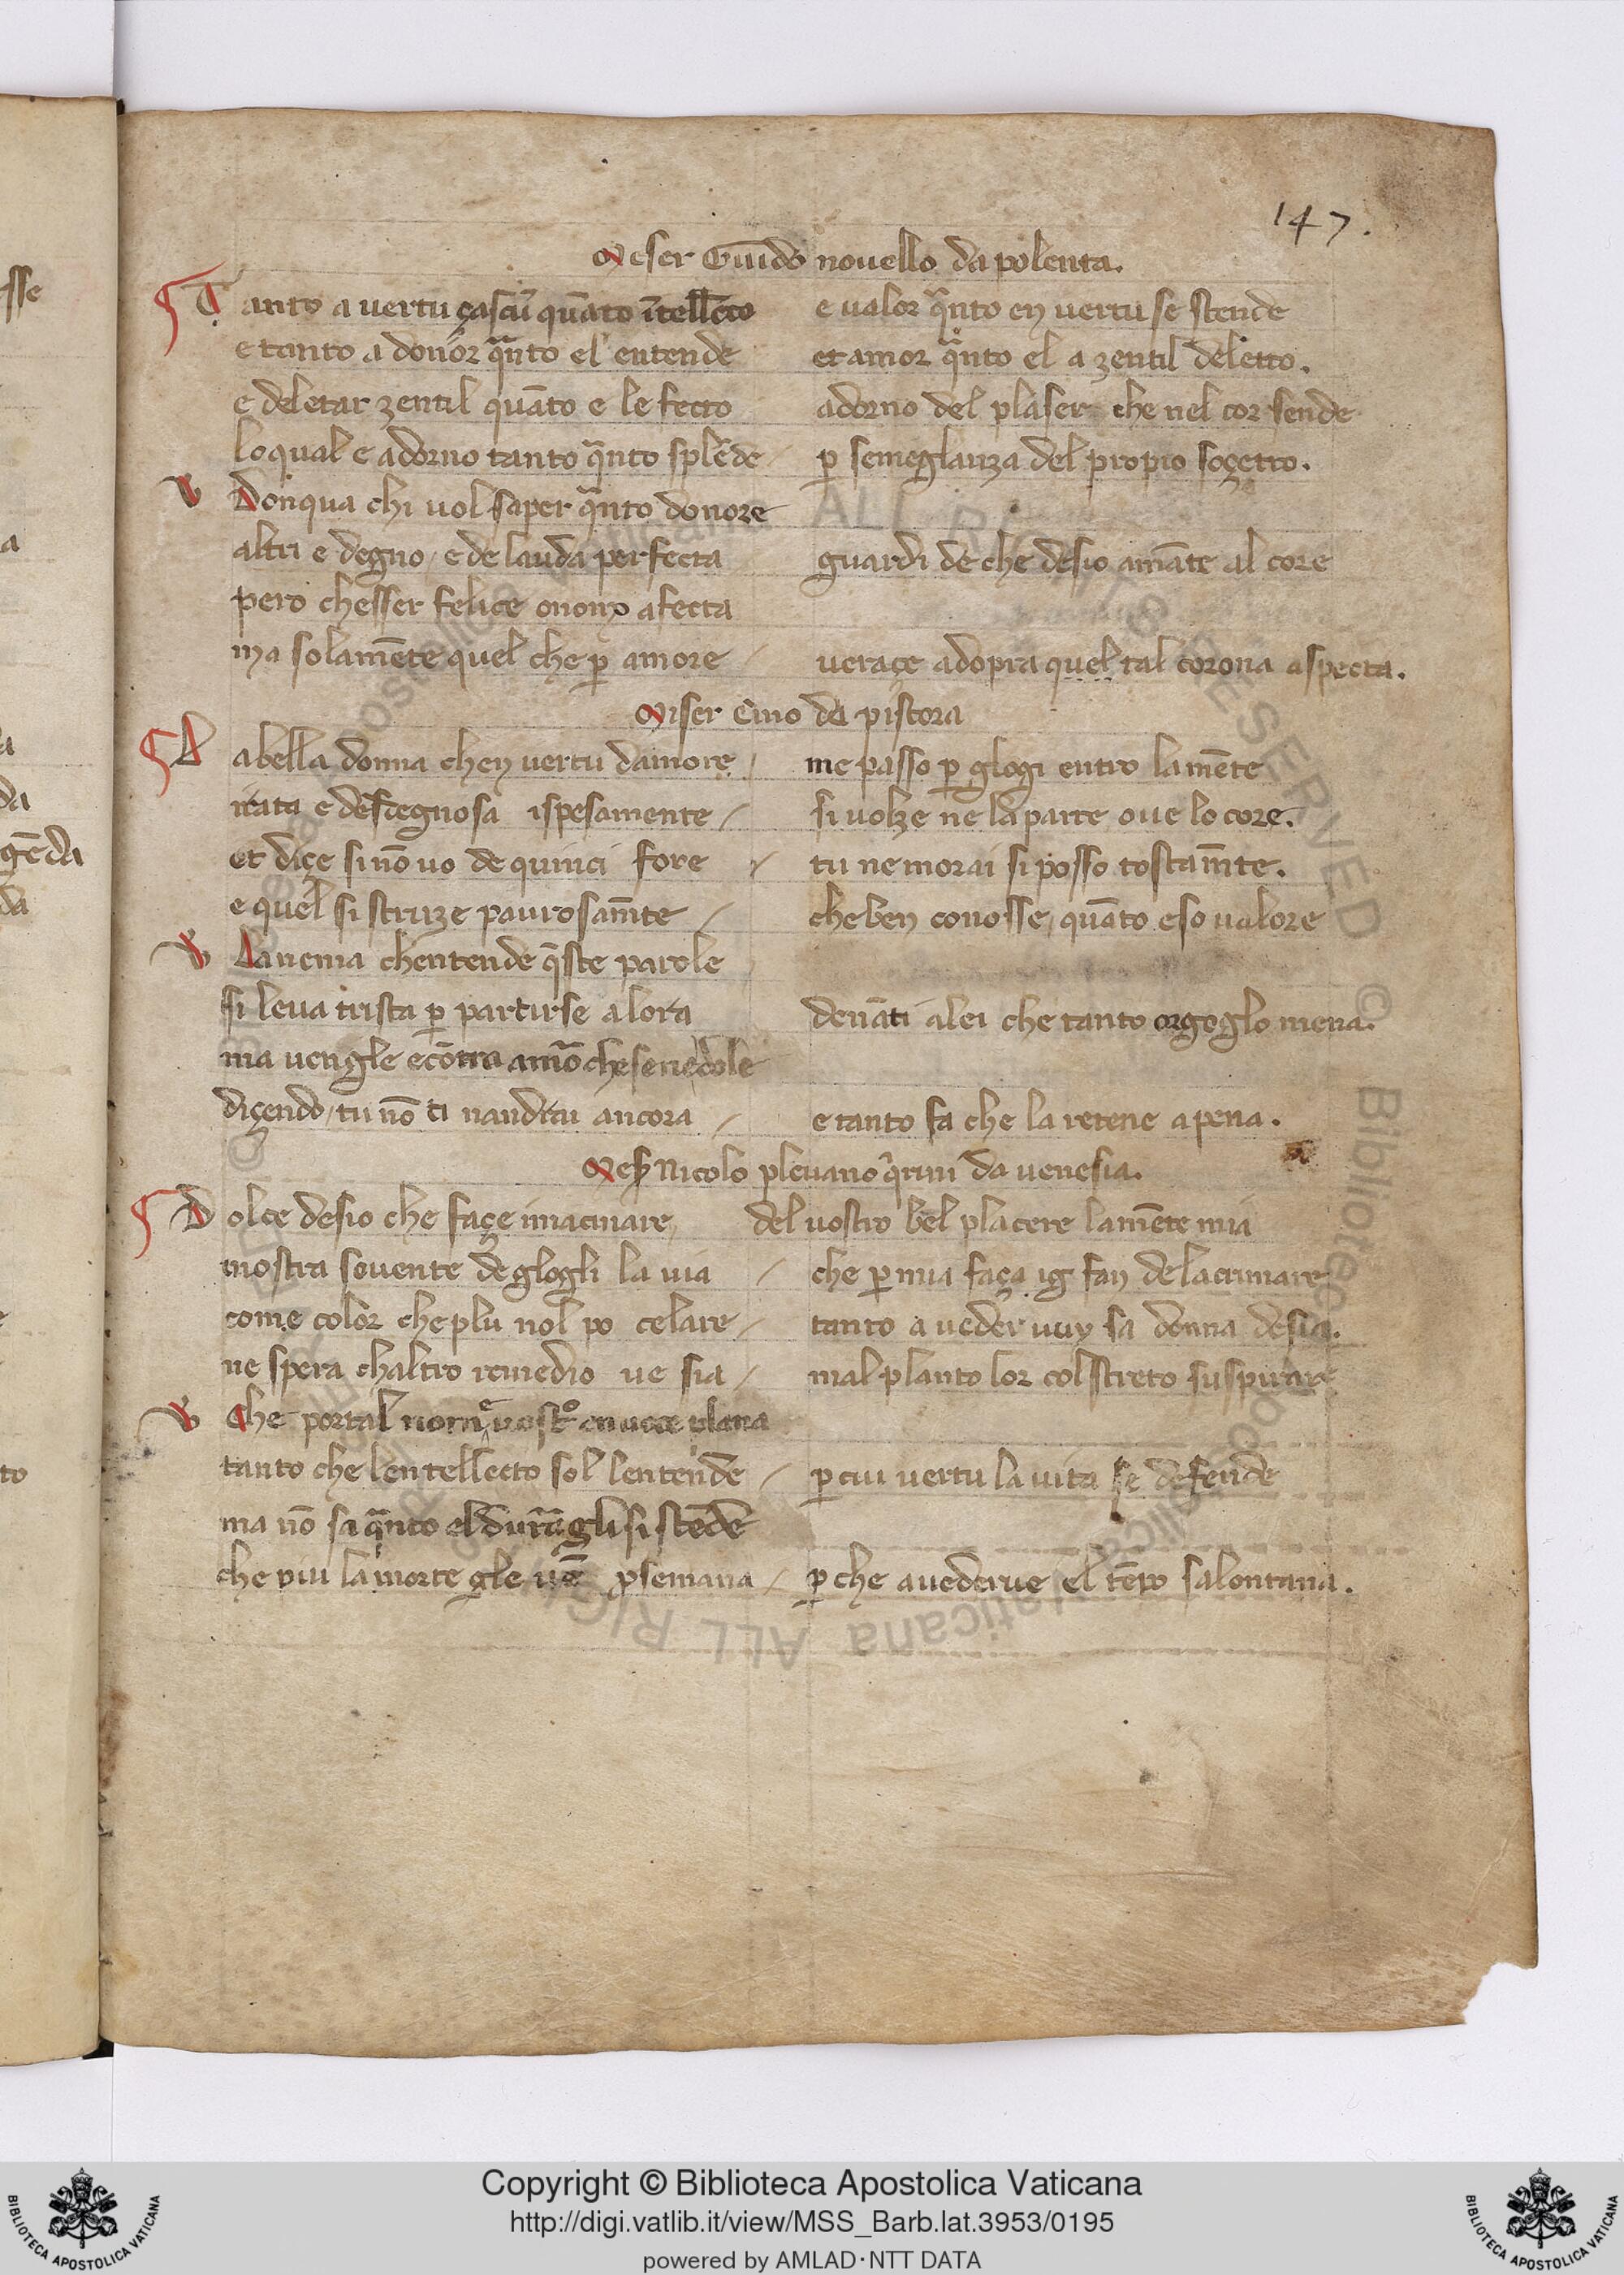 147.
Meser Guido novello da polenta.
Tanto a vertu çascũ quãto ĩtellecto e valor qᵃnto en vertu se stende
e tanto a donor qᵃnto el entende et amor qᵃnto el a zentil deletto.
e deletar zentil quãto e le fecto adorno del plaser che nel cor sende
lo qual e adorno tanto qᵃnto splẽde p̱ semeglanza del propio soçetto.
Donqua chi vol saper qᵃnto donore
altri e degno / e de lauda perfecta guardi de che desio amãte al core
pero chesser felice onomo afecta
ma solamẽte quel che p̱ amore veraçe adopra quel tal corona aspecta.
Miser Cino da pistora
La bella donna chen vertu damore / me passo p̱ glogi entro la mẽte
irata e desdegnosa ispesamente / si volze ne la parte ove lo core.
et diçe si nõ vo de quinci fore / tu ne morai si posso tostam̃te.
e quel si struze paurosam̃te / che ben conosse quãto e so valore
Lanema chentende q̃ste parole
si leva trista p̱ partirse alora denãti a lei che tanto orgoglo mena.
ma vengle ecõtra amõ che se ne dole
diçendo / tu nõ ti nandrai ancora / e tanto fa che la retene apena.
Mes̱ Nicolo plevano q̃rini da venesia.
Dolce desio che façe imacinare del vostro bel placere la mẽte mia
mostra sovente de glogli la via / che p̱ mia faça ig fan delacrimare
come color che plu nol po celare / tanto a veder vuy sa donna desia.
ne spera chaltro remedio ve sia / mal planto lor col streto suspirare
Che portal vostᵒ en voce plana
tanto che lentellecto sol lentende / p̱ cui vertu la vita se defende
ma nõ sa qᵃnto el durãgli si stẽde
che piu la morte gle vẽ / p̱ che a vederve el tẽpo salontana.
Copyright © Biblioteca Apostolica Vaticana
http://digi.vatlib.it/view/MSS_Barb.lat.3953/0195
powered by AMLAD·NTT DATA
BIBLIOTECA APOSTOLICA VATICANA
BIBLIOTECA APOSTOLICA VATICANA